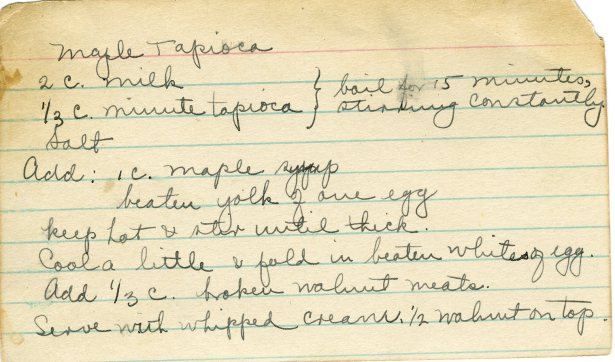 Maple Tapioca
2 c. milk } boil for 15 minutes,
1/3 c. minute tapioca } stirring constantly
Salt
Add: 1 c. maple syrup
beaten yolk of one egg
keep hot & stir until thick.
Cool a little & fold in beaten whites of egg.
Add 1/3 c. broken walnut meats.
Serve with whipped cream. 1/2 walnut on top.